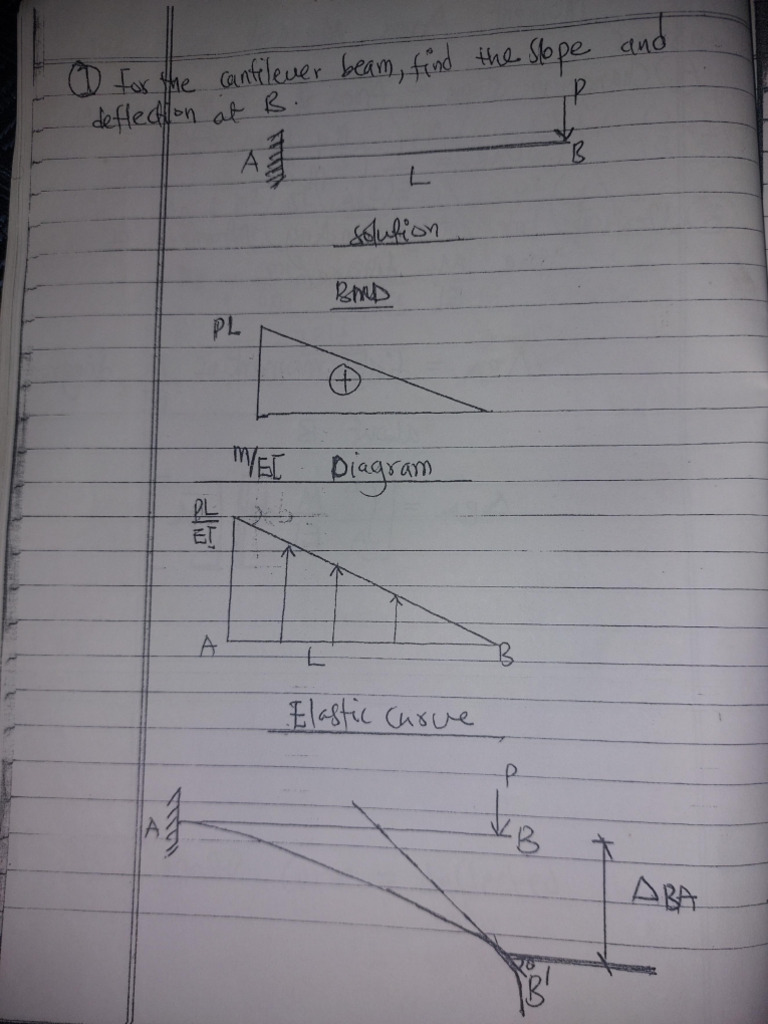 ① For the cantilever beam, find the slope and
deflection at B.
P
A
B
L
Solution
BMD
PL
+
M/EI Diagram
PL
EI
A
L
B
Elastic Curve
P
A
B
ΔBA
B'